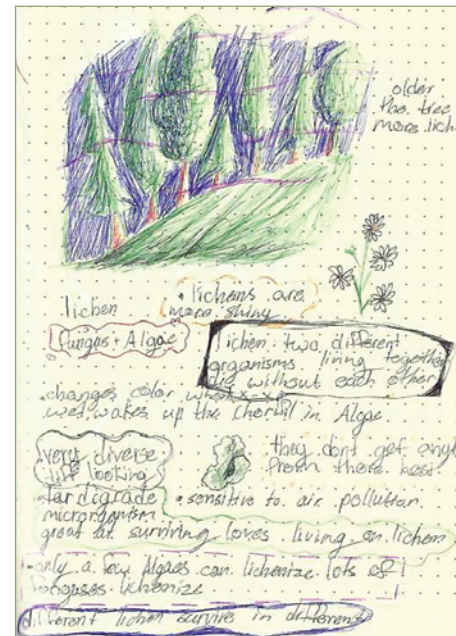 older
the tree
more lich
lichen
• lichens are
more shiny
fungus + Algae
lichen two different
organisms living together
die without each other
• changes color when
wet wakes up the in Algae
very diverse
diff looking
they dont get
from there host
• tardigrade
microrganism
great at surviving loves living on lichen
• sensitive to air pollution
• only a few Algaes can lichenize lots of
lichenize
different lichen survive in different